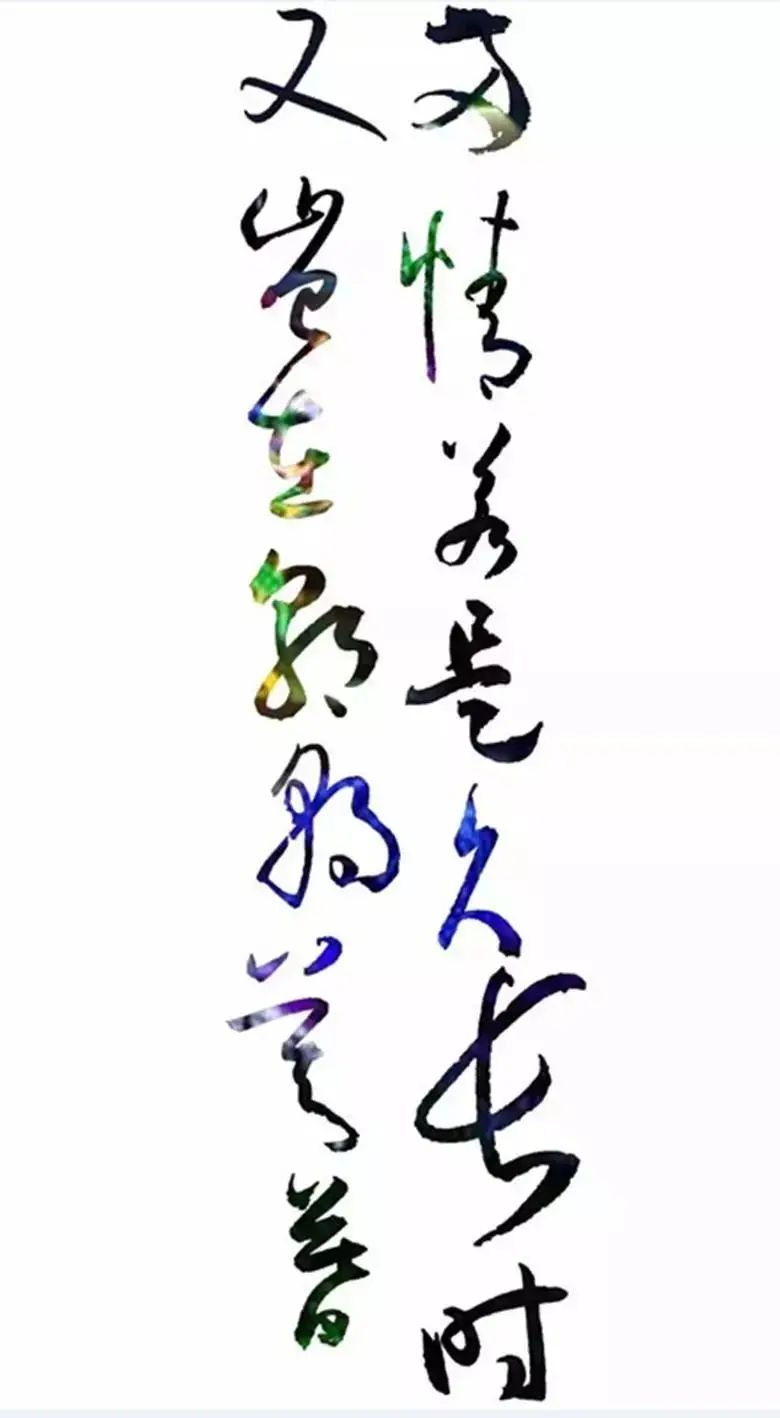 两情若是久长时
又岂在朝朝暮暮